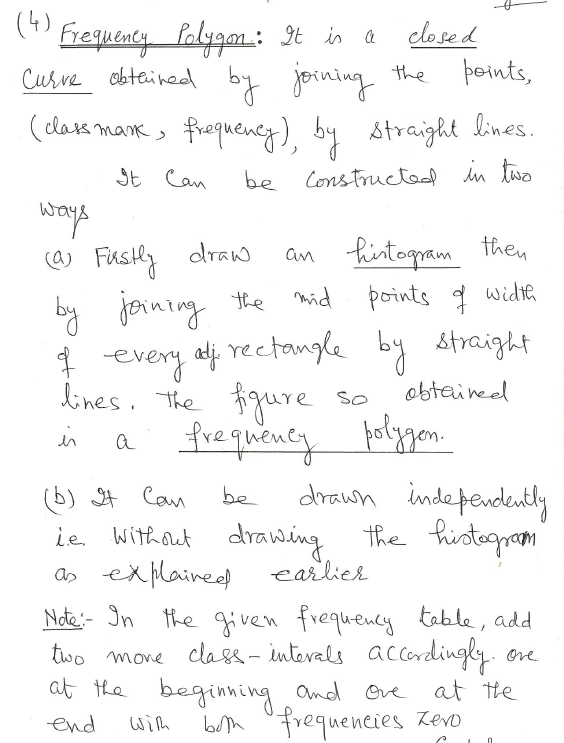 (4) Frequency Polygon: It is a closed
Curve obtained by joining the points,
(class mark, frequency), by straight lines.
It Can be Constructed in two
ways
(a) Firstly draw an histogram then
by joining the mid points of width
of every adj. rectangle by straight
lines. The figure so obtained
is a frequency polygon.
(b) It Can be drawn independently
i.e. Without drawing the histogram
as explained earlier
Note:- In the given frequency table, add
two more class-intervals accordingly. one
at the beginning and one at the
end with both frequencies Zero